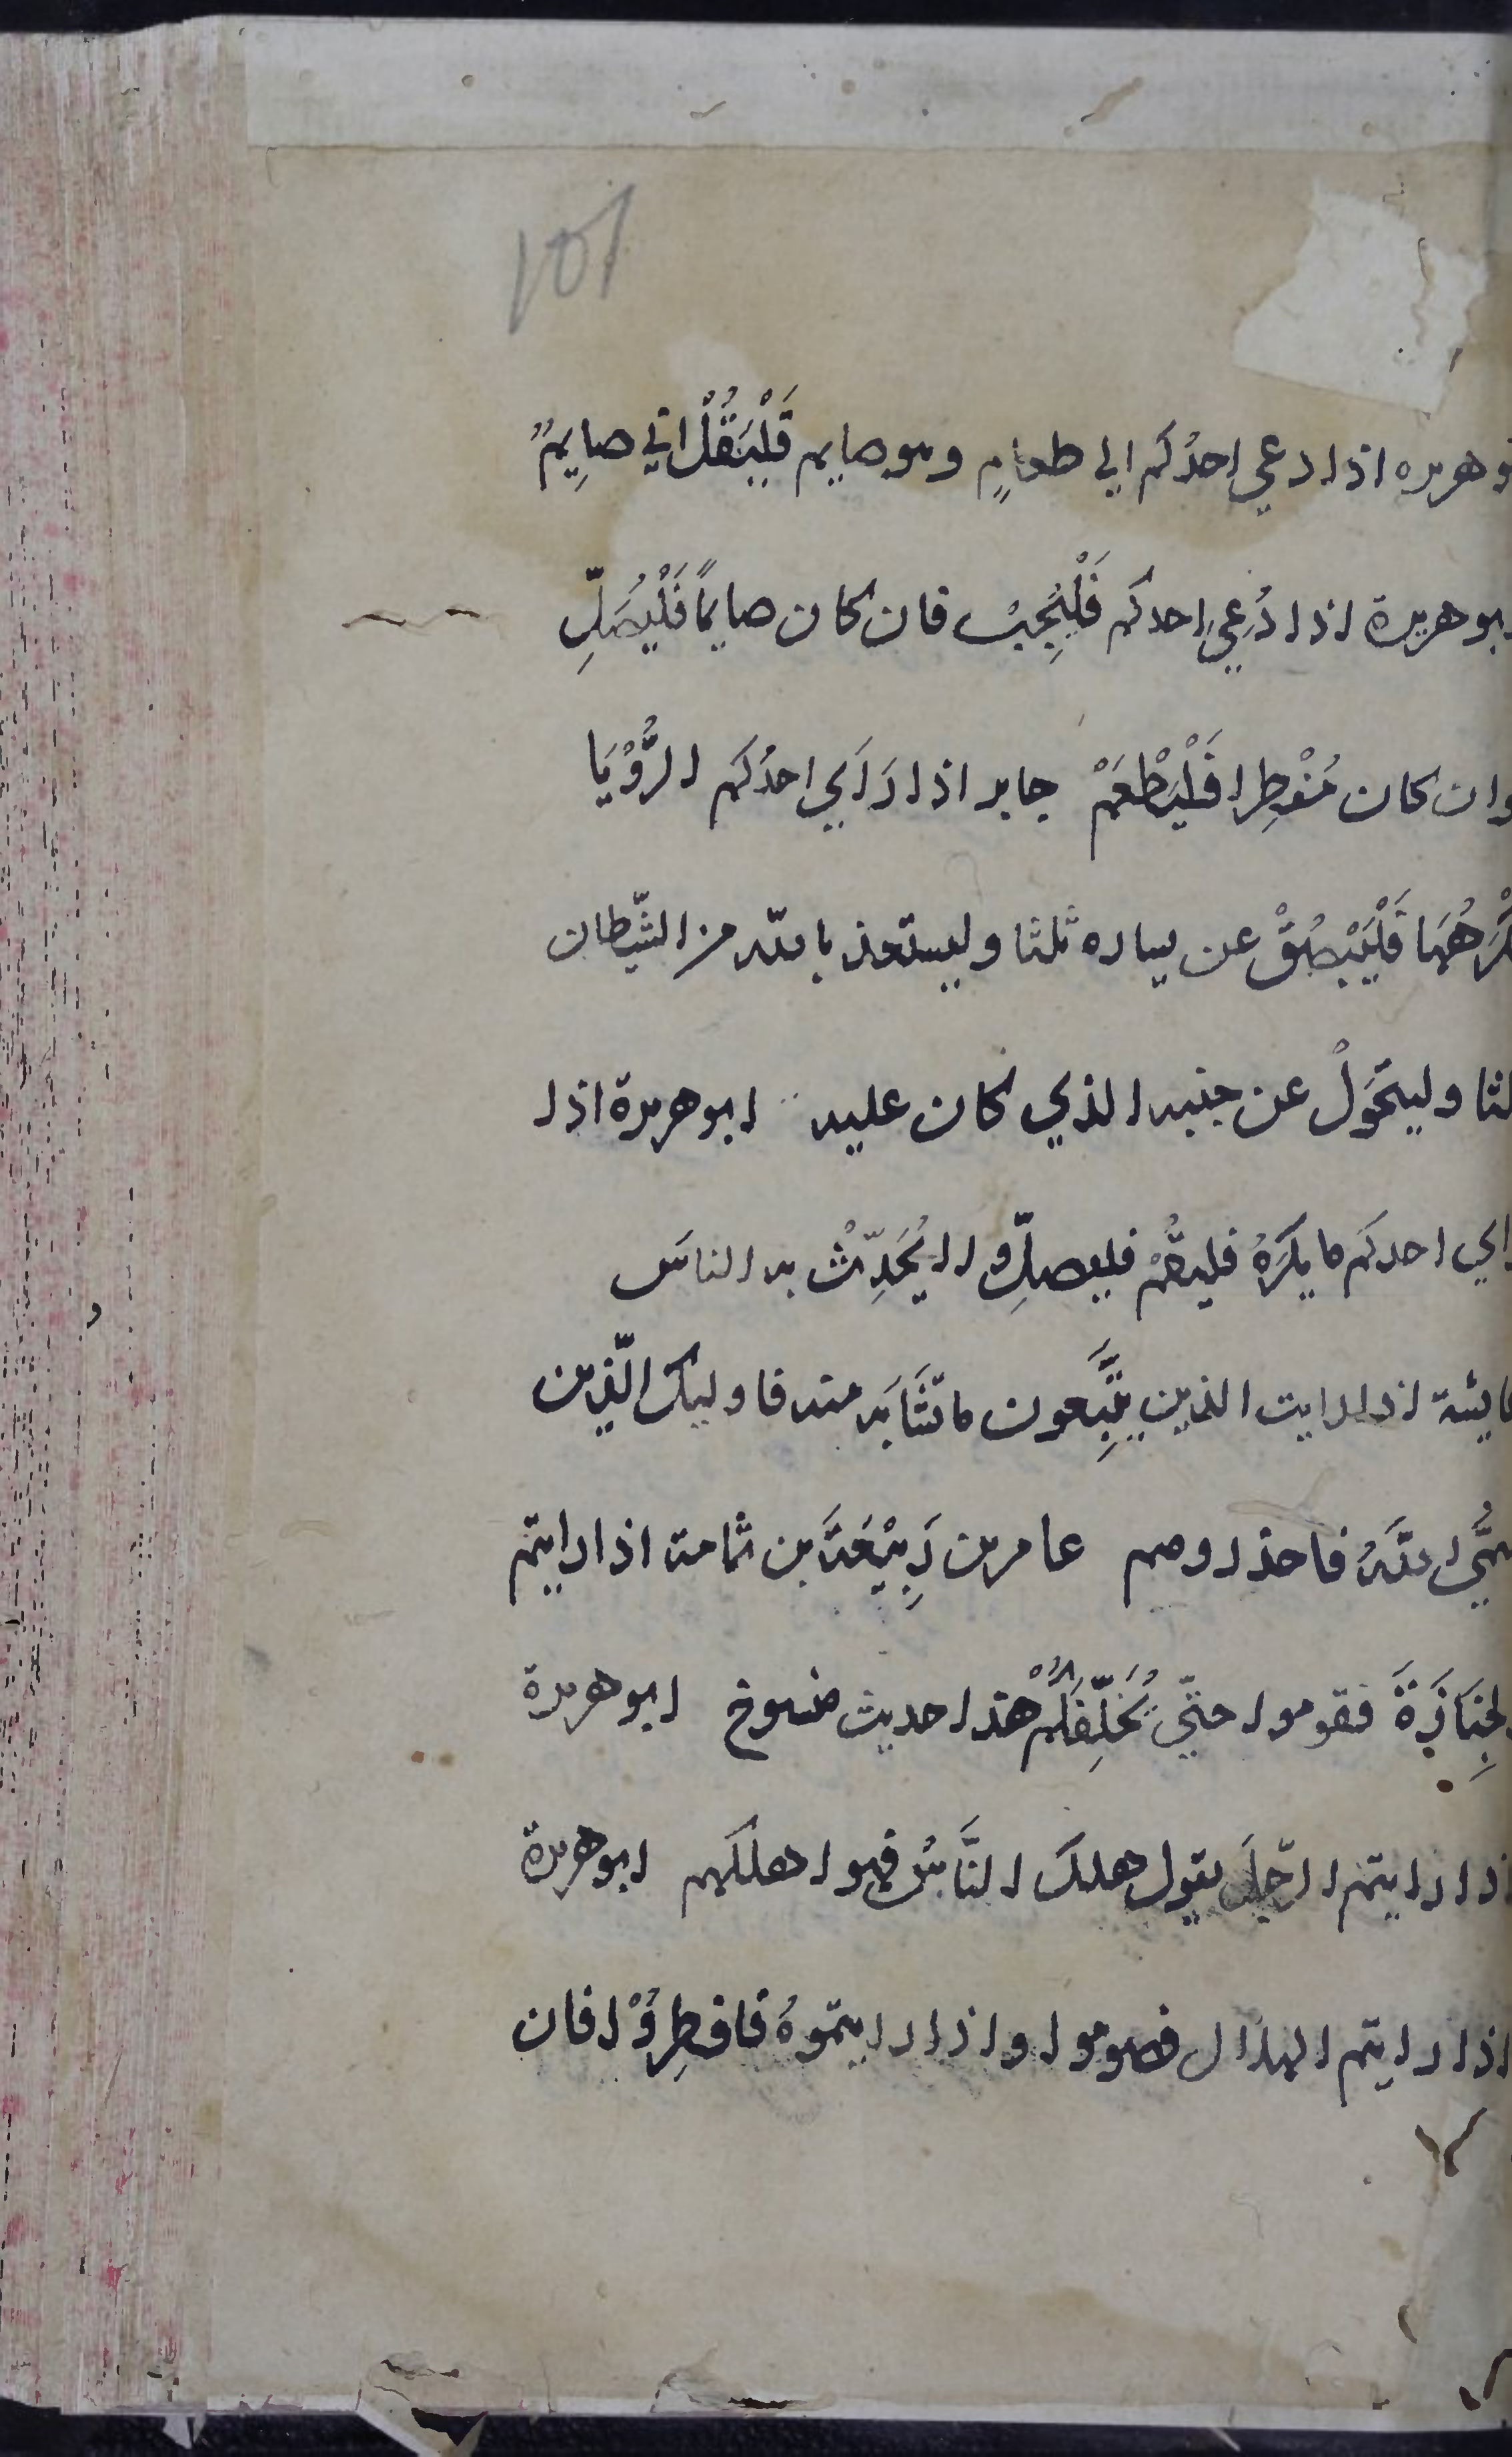 101
وهريره اذا دعي احدُكم الي طعامٍ وهو صايم فَلْيَقُلْ اني صايِمٌ
ابو هريرة اذا دُعِيَ احدكم فَلْيُجِبْ فان كان صايمًا فَلْيُصَلِّ
وان كان مُفْطِرا فَلْيَطْعَمْ جابر اذا رَاَي احدُكم الرُّؤْيَا
كْرَهُهَا فَلْيَبْصُقْ عن يساره ثلثا وليستعذ بالله من الشّيطان
لثا وليتحَوَّلْ عن جنبه الذي كان عليه ابو هريرة اذا
راي احدكم ما يكرَهُ فليقُمْ فليصلِّ ولا يُحَدِّثْ به الناسَ
عايشة اذا رايت الذين يتَّبِعون ما تَشَابَه منه فاوليك الّذين
سمَّي اللّهُ فاحذروهم عامر بن رَبِيْعَةَ بن ثمامة اذا رايتم
الجِنَازَةَ فقوموا حتّي تُخَلِّفَكُمْ هذا حديث منسوخ ابو هريرة
اذا رايتم الرّجلَ يقول هلك النَّاسُ فهو اهلكهم ابو هريرة
اذا رايتم الهلال فصوموا واذا رايتموهُ فافطِرُوْا فان